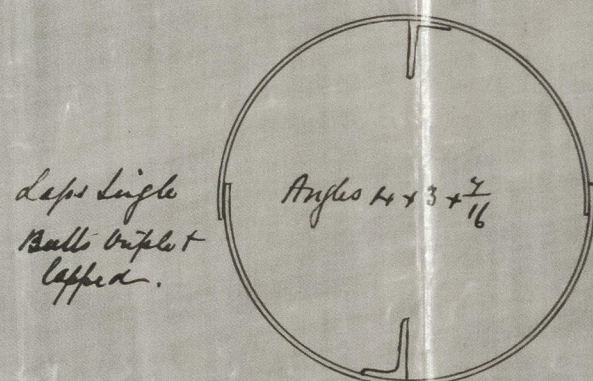 Laps single
Butts triple &
lapped.
Angles 4 x 3 x 7/16